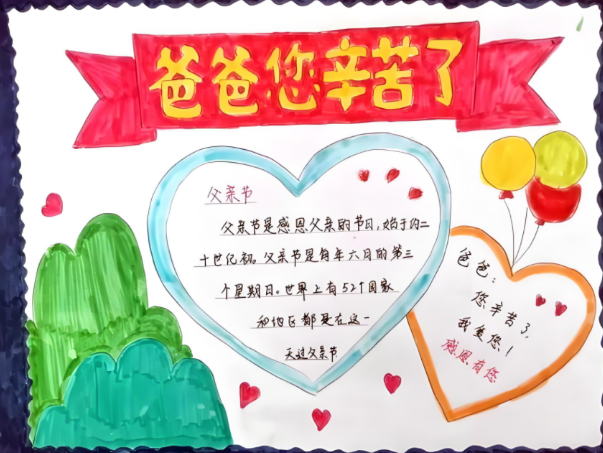 爸爸您辛苦了
父亲节
父亲节是感恩父亲的节日,始于约二
十世纪初。父亲节是每年六月的第三
个星期日。世界上有52个国家
和地区都是在这一
天过父亲节
爸爸:
您辛苦了,
我爱您!
感恩有您